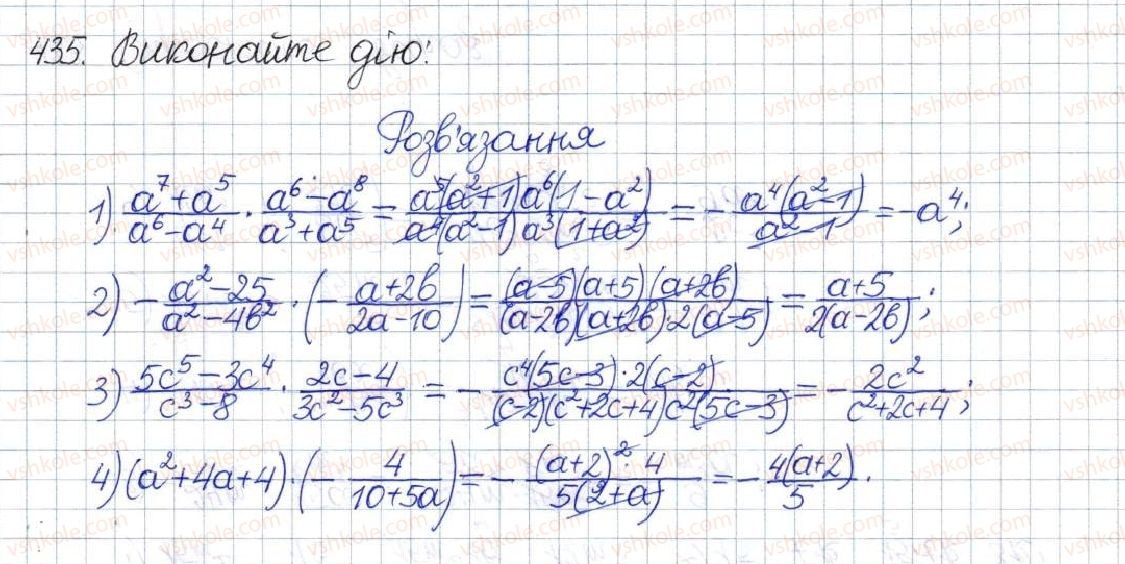 435. Виконайте дію:
Розв'язання
1) \frac{a^7+a^5}{a^6-a^4} · \frac{a^6-a^8}{a^3+a^5} = \frac{a^5(a^2+1)a^6(1-a^2)}{a^4(a^2-1)a^3(1+a^2)} = -\frac{a^4(a^2-1)}{a^2-1} = -a^4;
2) -\frac{a^2-25}{a^2-4b^2} · (-\frac{a+2b}{2a-10}) = \frac{(a-5)(a+5)(a+2b)}{(a-2b)(a+2b)·2(a-5)} = \frac{a+5}{2(a-2b)};
3) \frac{5c^5-3c^4}{c^3-8} · \frac{2c-4}{3c^2-5c^3} = -\frac{c^4(5c-3)·2(c-2)}{(c-2)(c^2+2c+4)c^2(5c-3)} = -\frac{2c^2}{c^2+2c+4};
4) (a^2+4a+4)·(-\frac{4}{10+5a}) = -\frac{(a+2)^2·4}{5(2+a)} = -\frac{4(a+2)}{5}.
vshkole.com